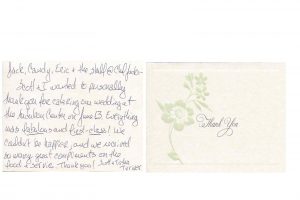 Jack, Candy, Eric & the staff @ Chef Jacks-
Scott & I wanted to personally
thank you for catering our wedding at
the Center on June 13. Everything
was fabulous and first-class! We
couldn't be happier, and we received
so many great compliments on the
food & service. Thank you! Scott &
Turner
Thank You